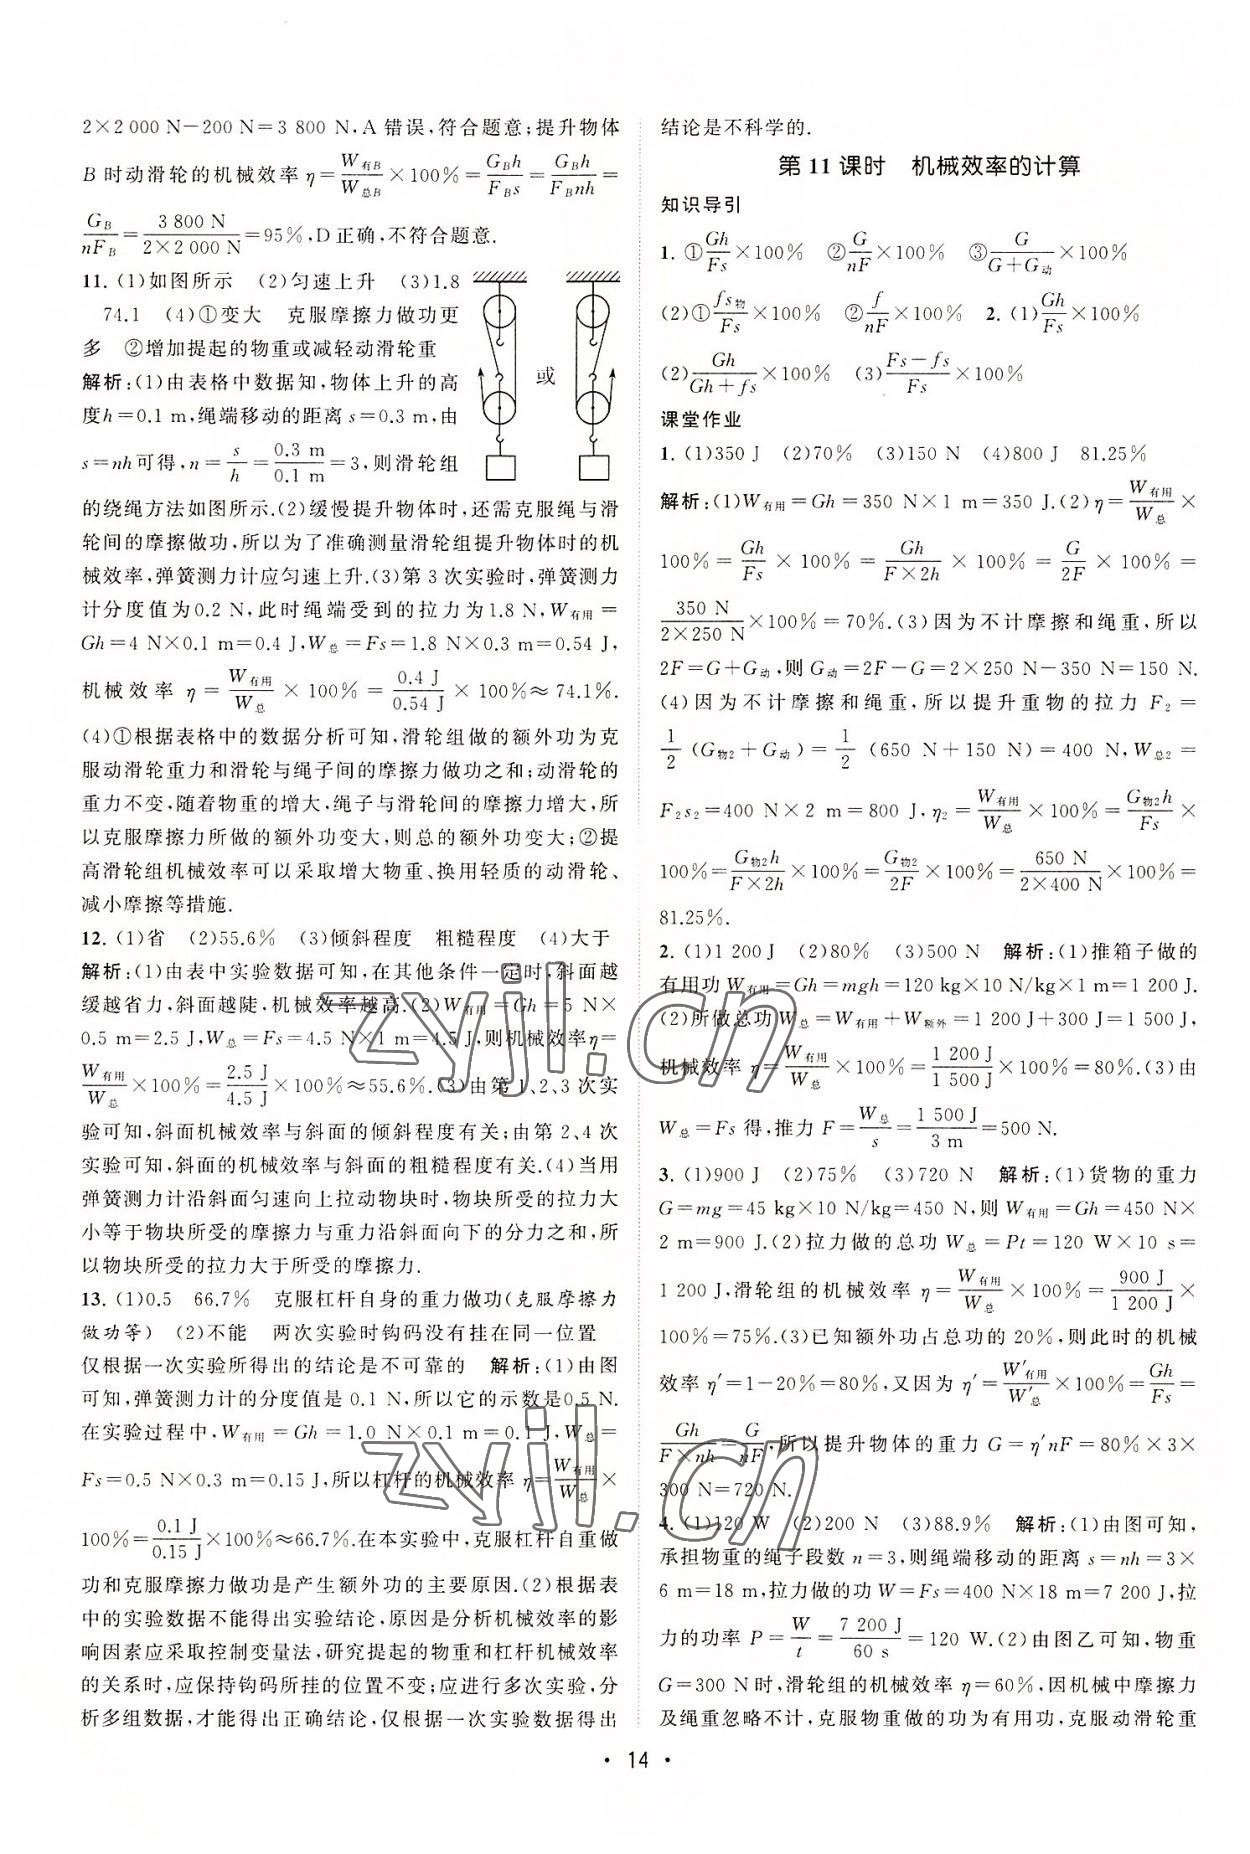 2×2 000 N－200 N＝3 800 N,A 错误,符合题意;提升物体
B 时动滑轮的机械效率 η＝W有B/W总B×100%＝G_Bh/F_Bs＝G_Bh/F_Bnh＝
G_B/nF_B＝3 800 N/2×2 000 N＝95%,D 正确,不符合题意.
11. (1)如图所示 (2)匀速上升 (3)1.8
74.1 (4)①变大 克服摩擦力做功更
多 ②增加提起的物重或减轻动滑轮重
解析:(1)由表格中数据知,物体上升的高
度h＝0.1 m,绳端移动的距离 s＝0.3 m,由
s＝nh可得,n＝s/h＝0.3 m/0.1 m＝3,则滑轮组
或
的绕绳方法如图所示.(2)缓慢提升物体时,还需克服绳与滑
轮间的摩擦做功,所以为了准确测量滑轮组提升物体时的机
械效率,弹簧测力计应匀速上升.(3)第 3 次实验时,弹簧测力
计分度值为0.2 N,此时绳端受到的拉力为1.8 N,W有用＝
Gh＝4 N×0.1 m＝0.4 J,W总＝Fs＝1.8 N×0.3 m＝0.54 J,
机械效率 η＝W有用/W总×100%＝0.4 J/0.54 J×100%≈74.1%.
(4)①根据表格中的数据分析可知,滑轮组做的额外功为克
服动滑轮重力和滑轮与绳子间的摩擦力做功之和;动滑轮的
重力不变,随着物重的增大,绳子与滑轮间的摩擦力增大,所
以克服摩擦力所做的额外功变大,则总的额外功变大;②提
高滑轮组机械效率可以采取增大物重、换用轻质的动滑轮、
减小摩擦等措施.
12. (1)省 (2)55.6% (3)倾斜程度 粗糙程度 (4)大于
解析:(1)由表中实验数据可知,在其他条件一定时,斜面越
缓越省力,斜面越陡,机械效率越高.(2)W有用＝Gh＝5 N×
0.5 m＝2.5 J,W总＝Fs＝4.5 N×1 m＝4.5 J,则机械效率 η＝
W有用/W总×100%＝2.5 J/4.5 J×100%≈55.6%.(3)由第 1、2、3 次实
验可知,斜面机械效率与斜面的倾斜程度有关;由第 2、4 次
实验可知,斜面的机械效率与斜面的粗糙程度有关.(4)当用
弹簧测力计沿斜面匀速向上拉动物块时,物块所受的拉力大
小等于物块所受的摩擦力与重力沿斜面向下的分力之和,所
以物块所受的拉力大于所受的摩擦力.
13. (1)0.5 66.7% 克服杠杆自身的重力做功(克服摩擦力
做功等) (2)不能 两次实验时钩码没有挂在同一位置
仅根据一次实验所得出的结论是不可靠的 解析:(1)由图
可知,弹簧测力计的分度值是 0.1 N,所以它的示数是0.5 N.
在实验过程中,W有用＝Gh＝1.0 N×0.1 m＝0.1 J,W总＝
Fs＝0.5 N×0.3 m＝0.15 J,所以杠杆的机械效率 η＝W有用/W总×
100%＝0.1 J/0.15 J×100%≈66.7%.在本实验中,克服杠杆自重做
功和克服摩擦力做功是产生额外功的主要原因.(2)根据表
中的实验数据不能得出实验结论,原因是分析机械效率的影
响因素应采取控制变量法,研究提起的物重和杠杆机械效率
的关系时,应保持钩码所挂的位置不变;应进行多次实验,分
析多组数据,才能得出正确结论,仅根据一次实验数据得出
结论是不科学的.
第 11 课时 机械效率的计算
知识导引
1. ①Gh/Fs×100% ②G/nF×100% ③G/G＋G动×100%
(2)①fs物/Fs×100% ②f/nF×100% 2. (1)Gh/Fs×100%
(2)Gh/Gh＋fs×100% (3)Fs－fs/Fs×100%
课堂作业
1. (1)350 J (2)70% (3)150 N (4)800 J 81.25%
解析:(1)W有用＝Gh＝350 N×1 m＝350 J.(2)η＝W有用/W总×
100%＝Gh/Fs×100%＝Gh/F×2h×100%＝G/2F×100%＝
350 N/2×250 N×100%＝70%.(3)因为不计摩擦和绳重,所以
2F＝G＋G动,则 G动＝2F－G＝2×250 N－350 N＝150 N.
(4)因为不计摩擦和绳重,所以提升重物的拉力 F₂＝
1/2(G物2＋G动)＝1/2(650 N＋150 N)＝400 N,W总2＝
F₂s₂＝400 N×2 m＝800 J,η₂＝W有用/W总×100%＝G物2h/Fs×
100%＝G物2h/F×2h×100%＝G物2/2F×100%＝650 N/2×400 N×100%＝
81.25%.
2. (1)1 200 J (2)80% (3)500 N 解析:(1)推箱子做的
有用功 W有用＝Gh＝mgh＝120 kg×10 N/kg×1 m＝1 200 J.
(2)所做总功 W总＝W有用＋W额外＝1 200 J＋300 J＝1 500 J,
机械效率 η＝W有用/W总×100%＝1 200 J/1 500 J×100%＝80%.(3)由
W总＝Fs 得,推力 F＝W总/s＝1 500 J/3 m＝500 N.
3. (1)900 J (2)75% (3)720 N 解析:(1)货物的重力
G＝mg＝45 kg×10 N/kg＝450 N,则 W有用＝Gh＝450 N×
2 m＝900 J.(2)拉力做的总功 W总＝Pt＝120 W×10 s＝
1 200 J,滑轮组的机械效率 η＝W有用/W总×100%＝900 J/1 200 J×
100%＝75%.(3)已知额外功占总功的 20%,则此时的机械
效率 η′＝1－20%＝80%,又因为 η′＝W′有用/W′总×100%＝Gh/Fs＝
Gh/F×nh＝G/nF,所以提升物体的重力 G＝η′nF＝80%×3×
300 N＝720 N.
4. (1)120 W (2)200 N (3)88.9% 解析:(1)由图可知,
承担物重的绳子段数 n＝3,则绳端移动的距离 s＝nh＝3×
6 m＝18 m,拉力做的功 W＝Fs＝400 N×18 m＝7 200 J,拉
力的功率 P＝W/t＝7 200 J/60 s＝120 W.(2)由图乙可知,物重
G＝300 N时,滑轮组的机械效率 η＝60%,因机械中摩擦力
及绳重忽略不计,克服物重做的功为有用功,克服动滑轮重
• 14 •
zyjl.cn
zyjl.cn